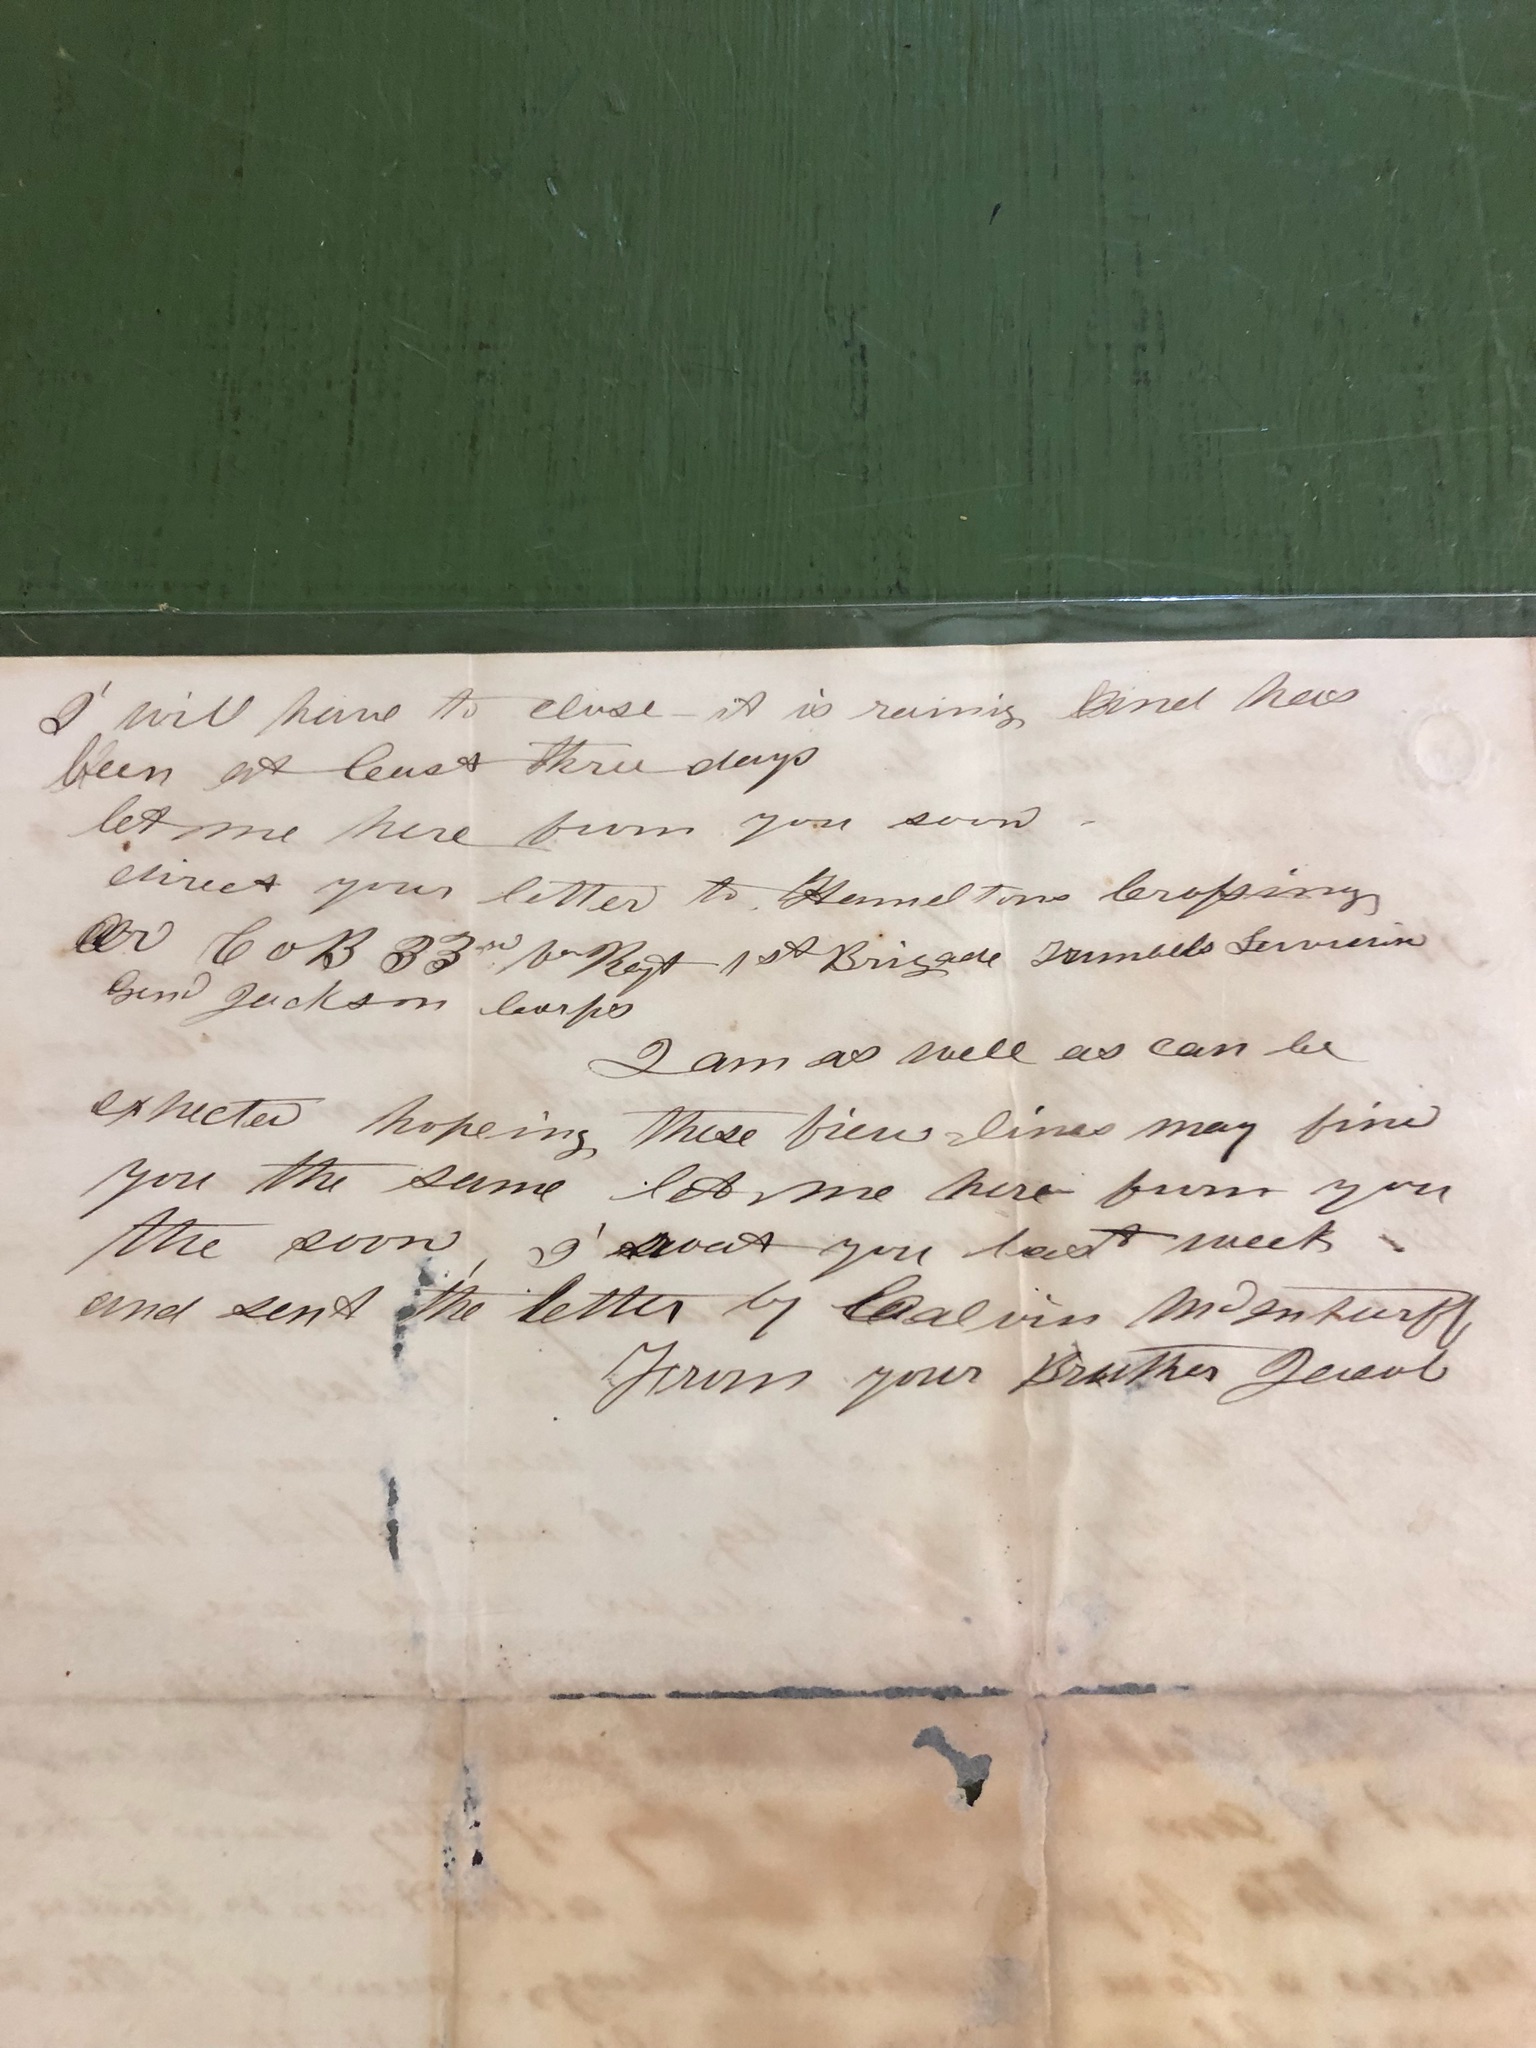 I will have to close - it is raining and has
been at least three days
let me here from you soon -
direct your letter to Hameltons Crossing
Co B 33rd Va Regt 1st Brigade Trimbels
Genl Jackson Corps
I am as well as can be
expected hopeing these few lines may find
you the same let me here from you
the soon, I wrot you last week -
and sent the letter by Calvin McInturff,
From your Bruther Jacob